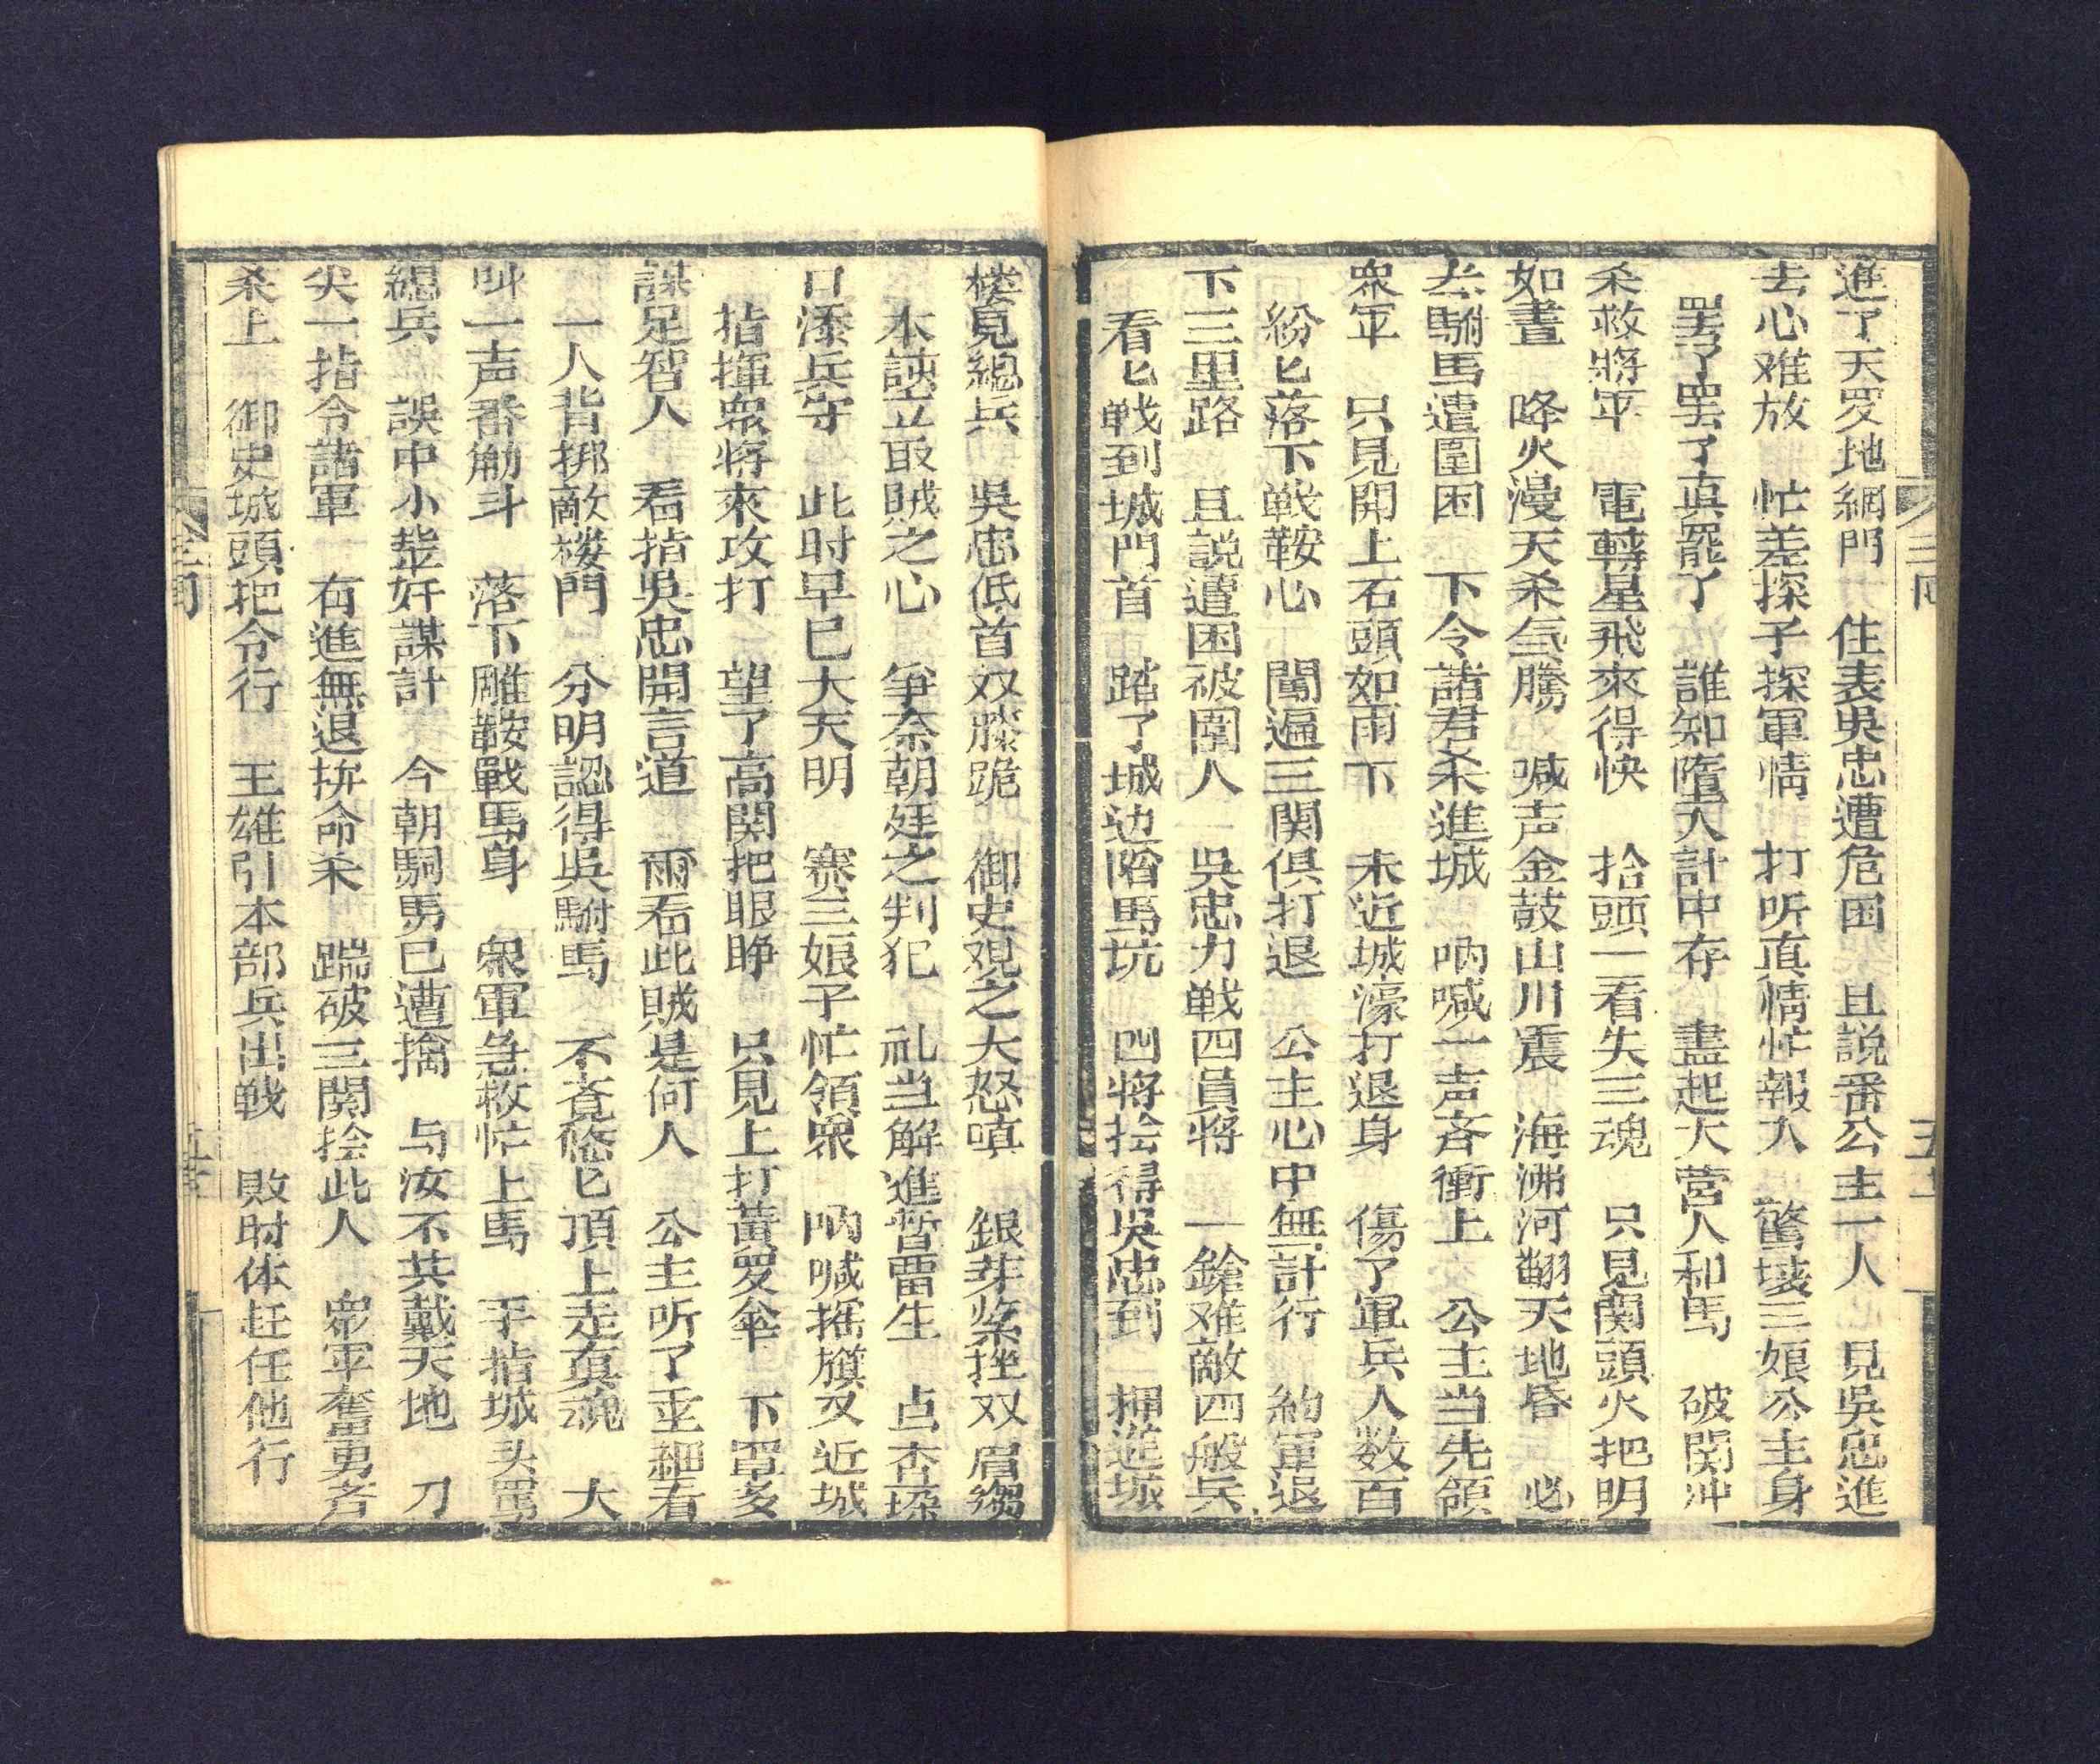 進了天罗地網門　住表吳忠遭危困　且説番公主一人　見吳忠進
去心难放　忙差探子探軍情　打听直情忙報入　驚壊三娘公主身
罢了罢了真罷了　誰知墮大計中存　盡起大营人和馬　破関冲
杀救將軍　電轉星飛來得快　抬頭一看失三魂　只見関頭火把明
如晝　降火漫天杀気騰　喊声金鼓山川震　海沸河翻天地昏　必
然駙馬遭圍困　下令諸君杀進城　吶喊一声斉衝上　公主当先領
衆军　只見開上石頭如雨下　未近城濠打退身　傷了軍兵人数百
紛匕落下戦鞍心　闖遍三関俱打退　公主心中無計行　約軍退
下三里路　且説遭困被圍人　吳忠力戦四員將　一鎗难敵四般兵
看匕戦到城門首　踏了城边陷馬坑　四将拴得吳忠到　押進城
楼見總兵　吳忠低首双膝跪　御史观之大怒嗔　銀芽紧挫双眉縐
本該立取賊之心　争奈朝廷之判犯　礼当解進暫留生　点查垜
口添兵守　此时早已大天明　寨三娘子忙領衆　吶喊揺旗又近城
指揮衆将來攻打　望了高関把眼睁　只見上打黄罗傘　下罩多
謀足智人　看指吳忠開言道　爾看此賊是何人　公主听了垂細看
一人背綁敵楼門　分明認得吳駙馬　不覚悠匕頂上走真魂　大
叫一声番觔斗　落下雕鞍戰馬身　衆軍急救忙上馬　手指城头罵
緫兵　誤中小輩奸謀計　今朝駙馬已遭擒　与汝不共戴天地　刀
尖一指令諸軍　有進無退拚命杀　踹破三関拴此人　衆军奮勇斉
杀上　御史城頭把令行　王雄引本部兵出戦　敗时休赶任他行